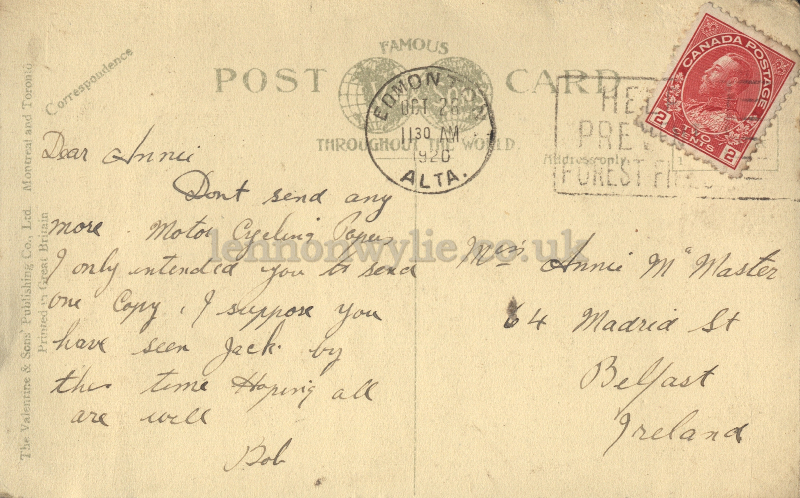 POST CARD
FAMOUS
THROUGHOUT THE WORLD
Correspondence
Address only
The Valentine & Sons' Publishing Co., Ltd. Montreal and Toronto
Printed in Great Britain
EDMONTON
OCT 26
11 30 AM
1920
ALTA.
HE
PREV
FOREST FI
CANADA POSTAGE
2 TWO CENTS 2
Dear Annie
Dont send any
more Motor Cycling Papers
I only intended you to send
one Copy, I suppose you
have seen Jack by
this time Hoping all
are well
Bob
Annie Mc Master
64 Madrid St
Belfast
Ireland
lennonwylie.co.uk